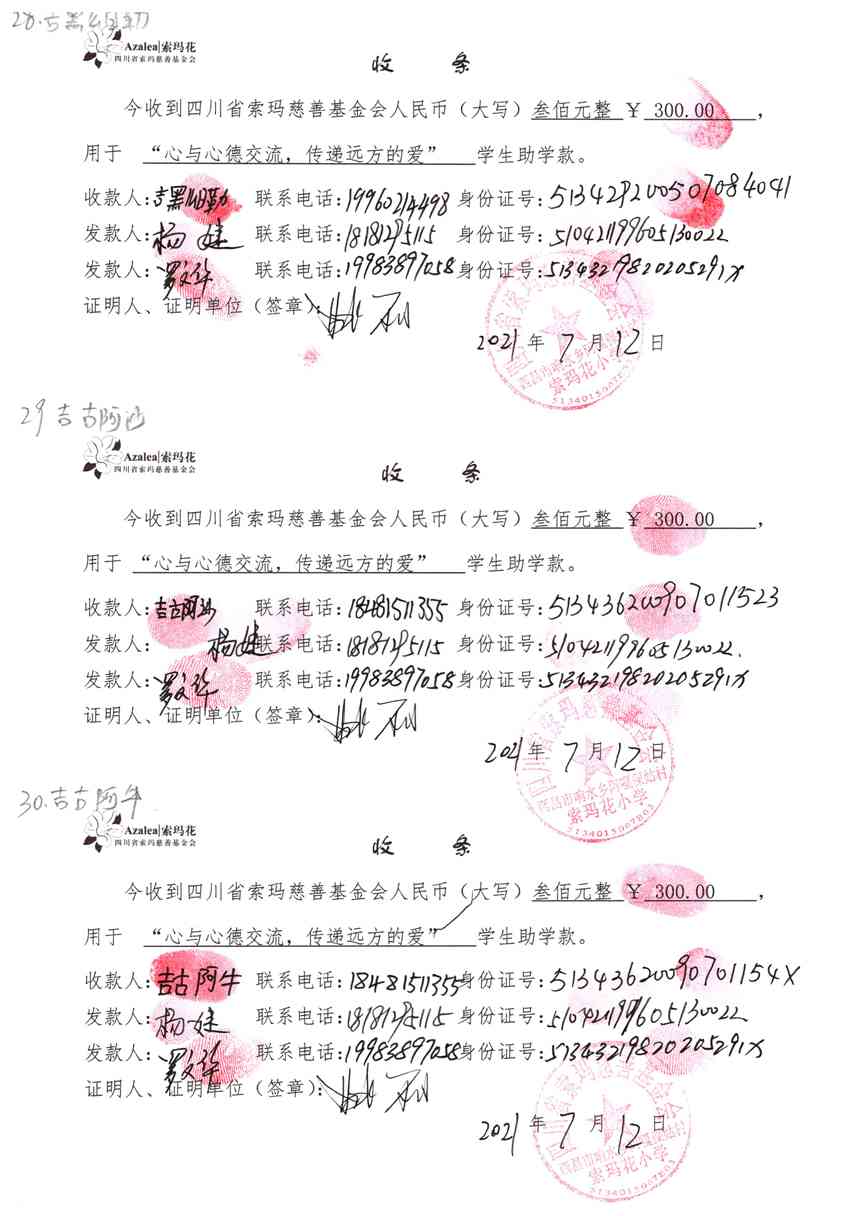 Azalea|索玛花
四川省索玛慈善基金会
收 条
今收到四川省索玛慈善基金会人民币（大写）叁佰元整 ￥ 300.00 ，
用于 “心与心德交流，传递远方的爱” 学生助学款。
收款人: 联系电话:19960214498 身份证号:513429200507084041
发款人: 联系电话:18181295115 身份证号:510421199605130022
发款人: 联系电话:19983897058 身份证号:51343219820205291X
证明人、证明单位（签章）:
2021年 7 月 12 日
索玛花小学
29 吉古阿沙
Azalea|索玛花
四川省索玛慈善基金会
收 条
今收到四川省索玛慈善基金会人民币（大写）叁佰元整 ￥ 300.00 ，
用于 “心与心德交流，传递远方的爱” 学生助学款。
收款人:吉古阿沙 联系电话:18481511355 身份证号:513436200907011523
发款人: 联系电话:18181295115 身份证号:510421199605130022.
发款人: 联系电话:19983897058 身份证号:51343219820205291X
证明人、证明单位（签章）:
2021年 7 月 12 日
索玛花小学
30.吉古阿牛
Azalea|索玛花
四川省索玛慈善基金会
收 条
今收到四川省索玛慈善基金会人民币（大写）叁佰元整 ￥ 300.00 ，
用于 “心与心德交流，传递远方的爱” 学生助学款。
收款人:吉古阿牛 联系电话:18481511355 身份证号:51343620090701154X
发款人: 联系电话:18181295115 身份证号:510421199605130022
发款人: 联系电话:19983897058 身份证号:51343219820205291X
证明人、证明单位（签章）:
2021 年 7 月 12 日
索玛花小学